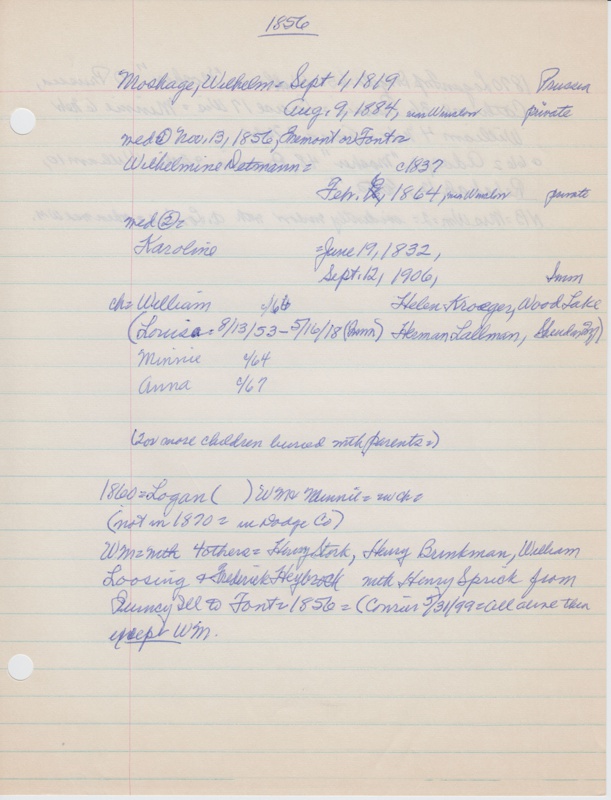 1856
Moskage, Wilhelm = Sept 1, 1819 Prussia
Aug. 9, 1884, nw Winslow private
med ① Nov. 13, 1856, Fremont or Font =
Wilhelmine Detmann = c1837
Feb. 1864, nw Winslow private
med ② =
Karoline = June 19, 1832,
Sept. 12, 1906, Imm
ch = William c/66 Helen Kroeger, Wood Lake
(Louisa = 8/13/53 – 5/16/18 (Imm) Herman Lallman,
Minnie c/64
Anna c/67
(2 or more children buried with parents =)
1860 = Logan ( ) Wm & Minnie = no ch =
(not in 1870 = in Dodge Co)
Wm = with 4 others = Henry Stork, Henry Brinkman, William
Loosing & Frederick Heybrock with Henry Sprick from
Quincy Ill to Font = 1856 = ( 5/31/99 = all alive then
except Wm.